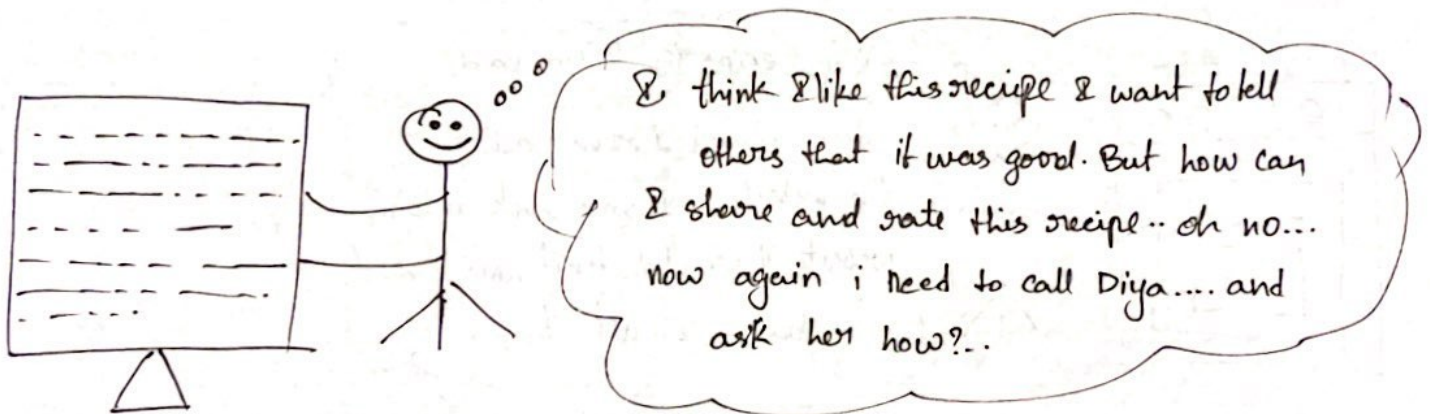 I think I like this recipe I want to tell
others that it was good. But how can
I share and rate this recipe.. oh no...
now again i need to call Diya.... and
ask her how?..